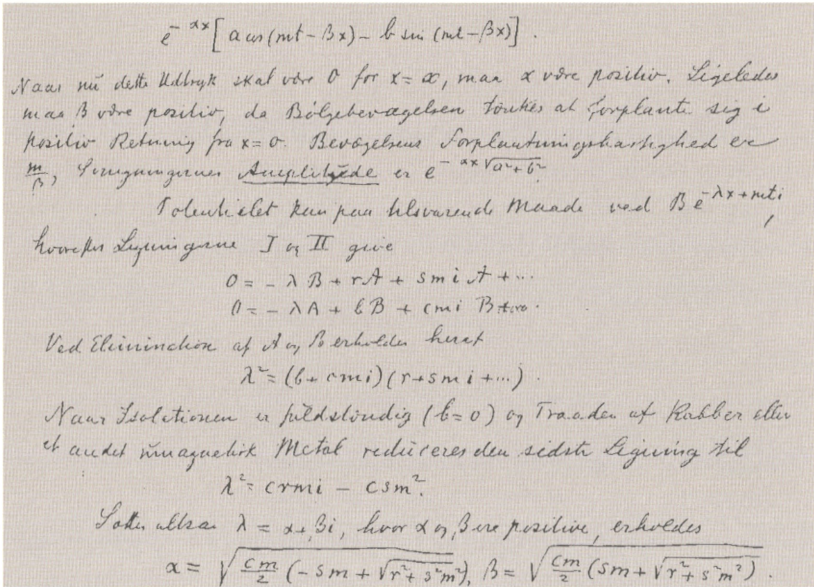 e^{-αx}[a cos(mt-βx) - b sin(mt-βx)].
Naar nu dette Udtryk skal være 0 for x=∞, maa α være positiv. Ligeledes
maa β være positiv, da Bølgebevægelsen tænkes at forplante sig i
positiv Retning fra x=0. Bevægelsens Forplantningshastighed er
m/β, Svingningernes Amplitude er e^{-αx√(a²+b²)}
Potentialet kan paa tilsvarende Maade ved B e^{-λx+mti},
hvorefter Ligningerne I og II give
0 = -λB + rA + smiA + ...
0 = -λA + bB + cmi B + ...
Ved Elimination af A og B erholdes heraf
λ² = (b+cmi)(r+smi+...).
Naar Isolationen er fuldstændig (b=0) og Traaden af Kobber eller
et andet umagnetisk Metal reduceres den sidste Ligning til
λ² = crmi - csm².
Sættes altsaa λ = α+βi, hvor α og β ere positive, erholdes
α = √(cm/2 (-sm+√(r²+s²m²))), β = √(cm/2 (sm+√(r²+s²m²))).